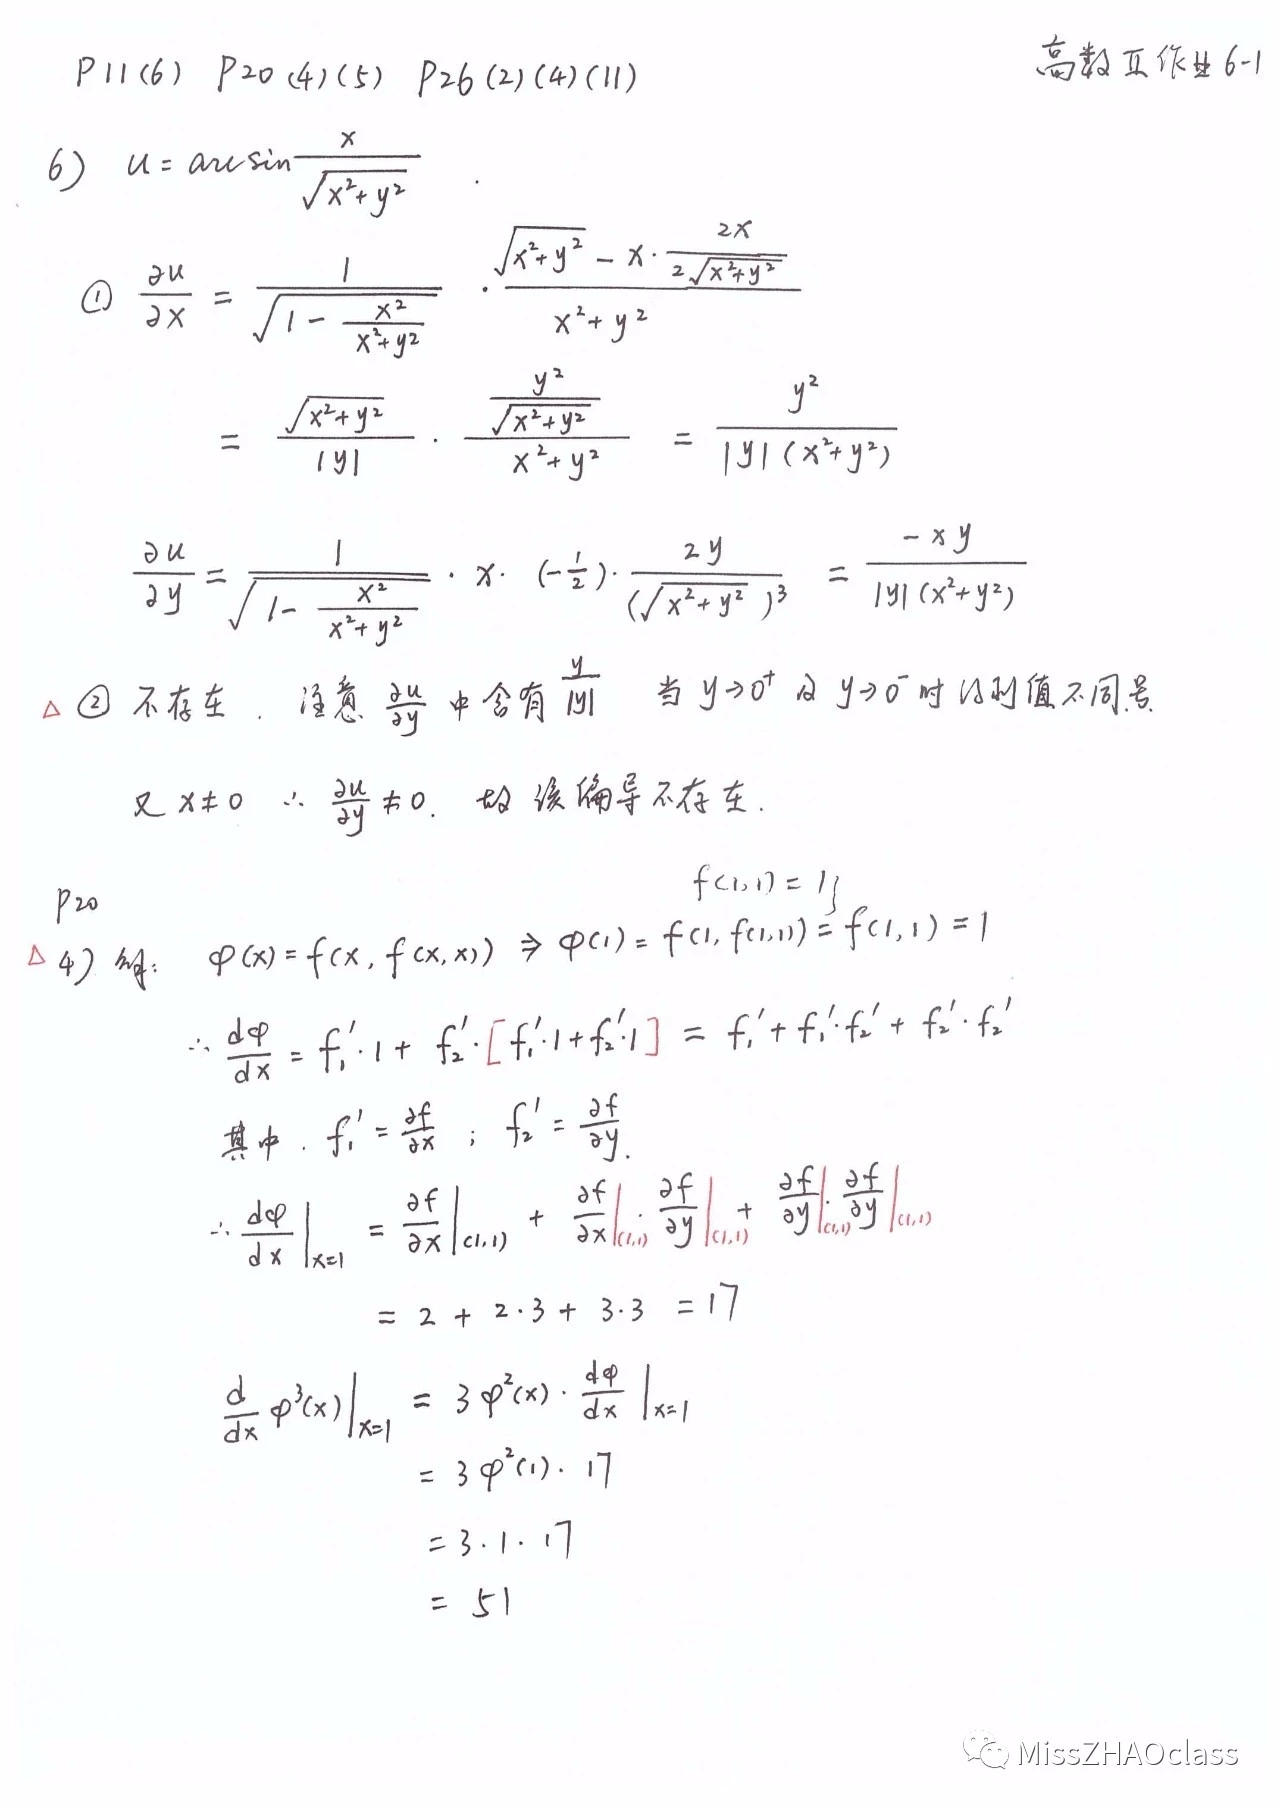 高数工作业6-1
P11(6) P20(4)(5) P26(2)(4)(11)
6) u = arcsin x/√(x²+y²)
① ∂u/∂x = 1/√(1 - x²/(x²+y²)) · (√(x²+y²) - x · 2x/(2√(x²+y²)))/(x²+y²)
= √(x²+y²)/|y| · (y²/√(x²+y²))/(x²+y²) = y²/(|y|(x²+y²))
∂u/∂y = 1/√(1 - x²/(x²+y²)) · x · (-1/2) · 2y/(√(x²+y²))³ = -xy/(|y|(x²+y²))
△ ② 不存在. 注意 ∂u/∂y 中含有 y/|y| 当 y→0⁺ 及 y→0⁻ 时 值不同号
又 x≠0 ∴ ∂u/∂y ≠0. 故该偏导不存在.
P20
f(1,1) = 1
△ 4) 解: φ(x) = f(x, f(x,x)) ⇒ φ(1) = f(1, f(1,1)) = f(1,1) = 1
∴ dφ/dx = f₁'·1 + f₂'·[f₁'·1+f₂'·1] = f₁' + f₁'·f₂' + f₂'·f₂'
其中. f₁' = ∂f/∂x ; f₂' = ∂f/∂y.
∴ dφ/dx|x=1 = ∂f/∂x|(1,1) + ∂f/∂x|(1,1) · ∂f/∂y|(1,1) + ∂f/∂y|(1,1) · ∂f/∂y|(1,1)
= 2 + 2·3 + 3·3 = 17
d/dx φ³(x)|x=1 = 3φ²(x) · dφ/dx|x=1
= 3φ²(1) · 17
= 3·1·17
= 51
MissZHAOclass